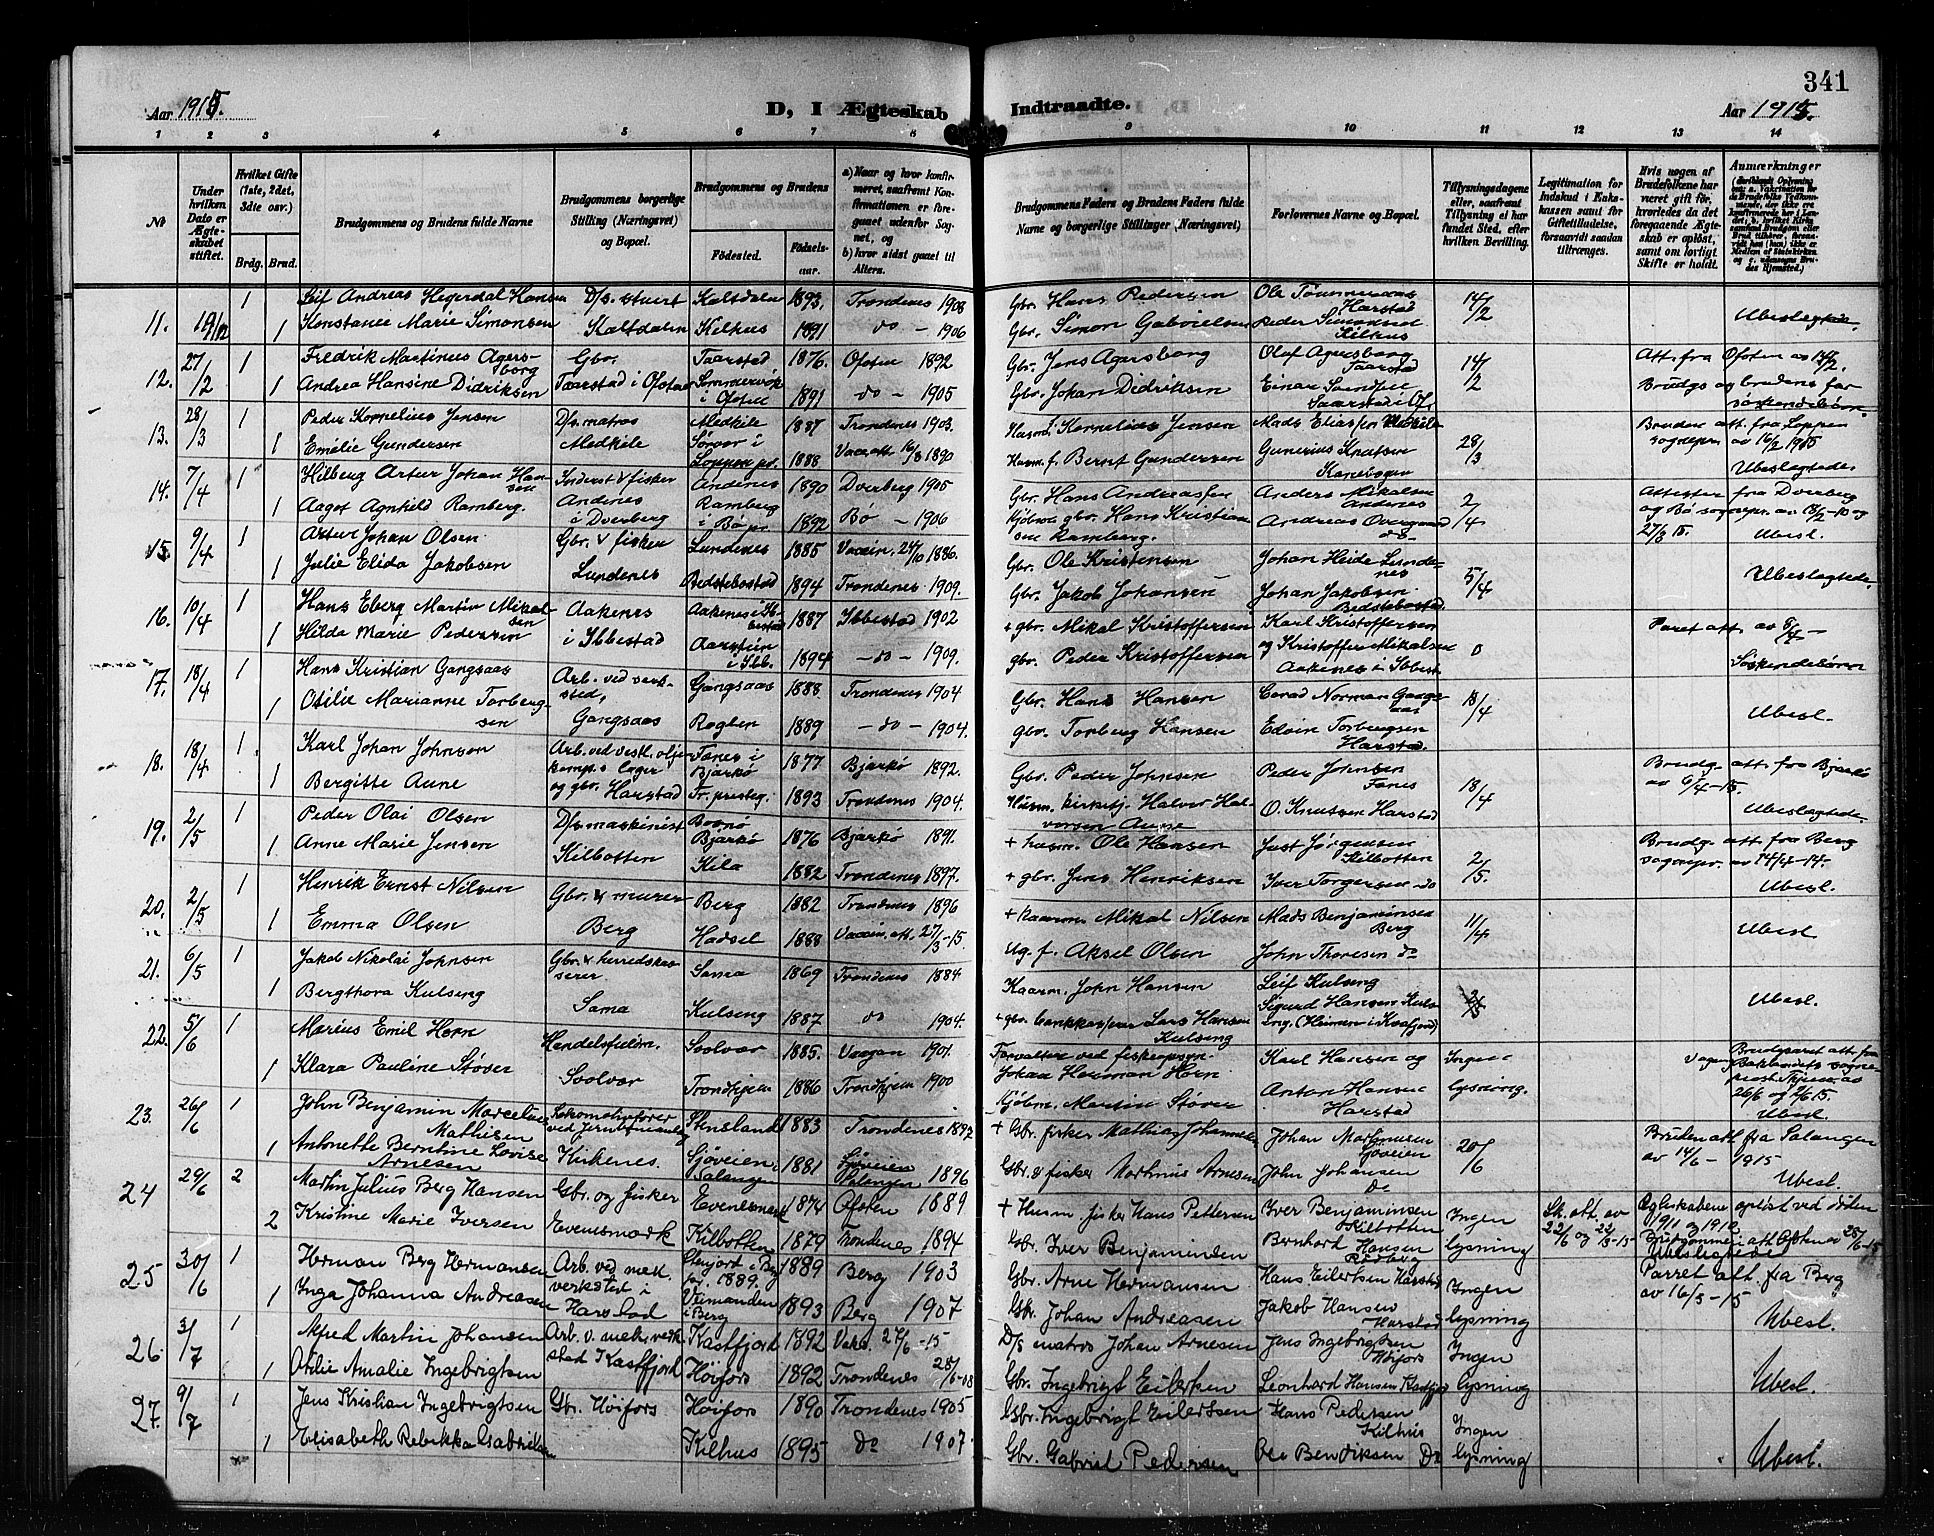 341
Aar 1915.
D, I Ægteskab Indtraadte.
Aar 1915.
1 2 3 4 5 6 7 8 9 10 11 12 13 14
No
Under hvilken Dato er Ægteskabet stiftet.
Hvilket Gifte (1ste, 2det, 3die osv.)
Brdg. Brud.
Brudgommens og Brudens fulde Navne
Brudgommens borgerlige Stilling (Næringsvei) og Bopæl.
Brudgommens og Brudens
Fødested.
Fødselsaar.
a) Naar og hvor konfirmeret, saafremt Konfirmationen er foregaaet udenfor Sognet, og
b) hvor sidst gaaet til Alters.
Brudgommens Faders og Brudens Faders fulde Navne og borgerlige Stillinger (Næringsvei)
Forlovernes Navne og Bopæl.
Tillysningsdagene eller, saafremt Tillysning ei har fundet Sted, efter hvilken Bevilling.
Legitimation for Indskud i Enkekassen samt for Giftetilladelse, forsaavidt saadan tiltrænges.
Hvis nogen af Brudefolkene har været gift før, hvorledes da det foregaaende Ægteskab er opløst, samt om lovligt Skifte er holdt.
Anmærkninger
11. 19/12 1 Leif Andreas Hegerdal Hansen D/s. stuert Kalsdalen 1893. Trondenes 1908 Gbr. Hans Pedersen Ole Tønnesaas Harstad 14/2
1 Konstance Marie Simonsen Kalfdalen Kilhus 1891 do - 1906 Gbr. Simon Gabrielsen Peder Simonsen Kilhus Ubeslagtede.
12. 27/2 1 Fredrik Martinus Agersborg Gbr. Taarstad 1876. Ofoten 1892 Gbr. Jens Agersborg Olaf Agersborg Taarstad 14/2 Att. fra Ofoten av 14/2.
1 Andrea Hansine Didriksen Taarstad i Ofoten Sommervik i Ofoten 1891 do - 1905 Gbr. Johan Didriksen Einar Taarstad i Of. Brudgs og brudens far søskendebørn.
13. 28/3 1 Peder Kornelius Jensen D/s. matros Medkile 1887 Trondenes 1903. Husm. Kornelius Jensen Mads Eliassen Medkile 28/3 Bruden att. fra Loppen
1 Emelie Gundersen Medkile Sørvær i Loppen pr. 1888 Vacc. att. 1890 Husm. f. Bernt Gundersen Gunerius Knutsen Kanebogen sognepr. av 16/2 1915 Ubeslagtede.
14. 7/4 1 Hilberg Artur Johan Hansen Inderst & fisker Andenes 1890 Dverberg 1905 Gbr. Hans Andreassen Anders Mikalsen Andenes 2/4 Attester fra Dverberg
1 Aagot Agnhild Ramberg. Andenes i Dverberg Ramberg i Bø pr. 1892 Bø - 1906 Kjøbm. gbr. Hans Kristiansen Ramberg. Andreas Overgaard do og Bø sognepr. av. 18/2-10 og 27/3 15. Ubesl.
15. 9/4 1 Artur Johan Olsen Gbr. & fisker Lundenes 1885 Vaccin. 24/10 1886. Gbr. Ole Kristensen Johan Heide Lundenes 5/4
1 Julie Elida Jakobsen Lundenes Bedstebostad 1894 Trondenes 1909. Gbr. Jakob Johansen Johan Jakobsen Bedstebostad Ubeslagtede.
16. 10/4 1 Hans Eberg Martin Mikalsen Aakenes Aakenes i Ibbestad 1887 Ibbestad 1902 + gbr. Mikal Kristoffersen Karl Kristoffersen 0 Paret att. av 8/4 -
1 Hilda Marie Pedersen i Ibbestad Aarstein i Ibb. 1894 - do - 1909. gbr. Peder Kristoffersen og Kristoffer Mikalsen Aakenes i Ibbest. Søskendebørn
17. 18/4 1 Hans Kristian Gangsaas Arb. ved verksted, Gangsaas 1888 Trondenes 1904 Gbr. Hans Hansen Conrad Norman Gangsaas 18/4
1 Otilie Marianne Torbergsen Gangsaas Rogten 1889 - do - 1904. gbr. Torberg Hansen Edvin Torbergsen Harstad. Ubesl.
18. 18/4 1 Karl Johan Johnson Arb. ved vestl. olje Fanes i Bjarkø 1877 Bjarkø 1892. Gbr. Peder Johnsen Peder Johnsen Fanes 18/4 Brudg. att. fra Bjarkø av 6/4-15.
1 Bergitte Aune komp.s lager og gbr. Harstad Tr. presteg. 1893 Trondenes 1904. Husm. kirketj. Halvor Halvorsen Aune O. Knutsen Harstad Ubeslagtede.
19. 2/5 1 Peder Olai Olsen D/s. maskinist Bjarkø 1876 Bjarkø 1891. + husm. Ole Hansen Just Jørgensen Kilbotten 2/5. Brudg. att. fra Berg sognepr. av 14/4-14.
1 Anne Marie Jensen Kilbotten Kila 1882 Trondenes 1897. + gbr. Jens Henriksen Iver Torgersen do Ubesl.
20. 2/5 1 Henrik Ernst Nilsen Gbr. & murer Berg 1882 Trondenes 1896 + Kaarm. Mikal Nilsen Mads Benjaminsen Berg 11/4
1 Emma Olsen Berg Hadsel 1888 Vaccin. att. 27/3-15. Ug. f. Aksel Olsen John Thoresen do Ubesl.
21. 6/5 1 Jakob Nikolai Johnsen Gbr. & herredskasserer Sama 1869 Trondenes 1884 Kaarm. John Hansen Leif Kulseng 2/5
1 Bergthora Kulseng Sama Kulseng 1887 do 1904. + gbr. bankkasserer Lars Hansen Kulseng Sigurd Hansen Kulseng. (Heimen i Kvæfjord) Ubesl.
22. 5/6 1 Marius Emil Horn Handelsfuldm. Svolvær 1885. Vaagan 1901. Forvalter ved fiskeopsyn. Johan Herman Horn Karl Hansen og Ingen Brudeparet att. fra Vagan og Baklandets sogneprest Thjem av
1 Klara Pauline Støver Svolvær Trondhjem 1886 Trondhjem 1900 Kjøbm. Martin Støver Anton Hansen Harstad lysning. 26/5 og 2/6 15. Ubesl.
23. 26/6 1 John Benjamin Marcelius Mathisen Lokomotivfører ved Jernbaneanlæg Stensland 1883 Trondenes 1897 + Gbr. fisker Mathias Johannesen Johan Martinusen Sjøveien 20/6 Bruden att. fra Salangen av 14/6 - 1915
1 Antonette Berntine Lovise Arnesen Kirkenes. Sjøveien Salangen 1881 Sjøveien Salangen 1896 Gbr. & fisker Martinus Arnesen John Johansen Do Ubesl.
24 29/6 2 Martin Julius Berg Hansen Gbr. og fisker Evenesmark 1874 Ofoten 1889 + Husm fisker Hans Pettersen Iver Benjaminsen Kilbotten Ingen Sk. att. av Ægteskabene opløst ved døden 1911 og 1912
2 Kristine Marie Iversen Evenesmark Kilbotten 1879 Trondenes 1894 Gbr. Iver Benjaminsen Bernhard Hansen Rødberg lysning 22/6 og 22/5-15 Brudgommen att. Ofoten av 25/6-15 Ubeslegtede
25 30/6 1 Herman Berg Hermansen Arb. ved mek. Stenjord i Berg pr. 1889. 1889 Berg 1903 Gbr. Arne Hermansen Hans Eilertsen Harstad Ingen Parret att. fra Berg av 16/3-15
1 Inga Johanna Andreasen verksted i Harstad i Berg 1893 Berg 1907 Gbr. Johan Andreasen Jakob Hansen Harstad lysning Ubesl.
26. 3/7 1 Alfred Martin Johansen Arb. v. mek. verksted Kastfjord Kastfjord 1892 Vaks. 27/6-15 D/s matros Johan Arnesen Jens Ingebrigtsen Høifors Ingen
1 Otilie Amalie Ingebrigtsen Høifors 1892 Trondenes 28/6-08 Gbr. Ingebrigt Eilertsen Leonhard Hansen Kastfjord lysning Ubesl.
27. 9/7 1 Jens Kristian Ingebrigtsen Gbr. Høifors Høifors 1890 Trondenes 1905 Gbr. Ingebrigt Eilertsen Hans Pedersen Kilhus Ingen
1 Elisabeth Rebekka Gabrielsen Kilhus 1895 Do 1907. Gbr. Gabriel Pedersen Ole Bendiksen Do lysning Ubesl.